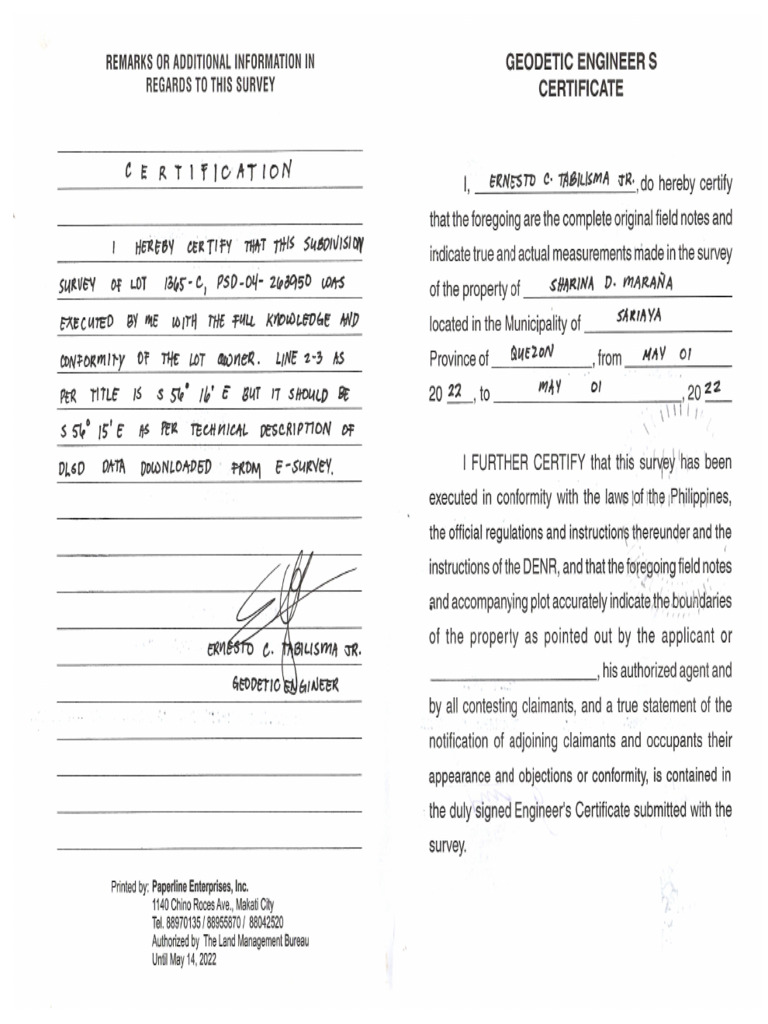 REMARKS OR ADDITIONAL INFORMATION IN
REGARDS TO THIS SURVEY
CERTIFICATION
I HEREBY CERTIFY THAT THIS SUBDIVISION
SURVEY OF LOT 1365-C, PSD-04-263950 WAS
EXECUTED BY ME WITH THE FULL KNOWLEDGE AND
CONFORMITY OF THE LOT OWNER. LINE 2-3 AS
PER TITLE IS S 56° 16' E BUT IT SHOULD BE
S 56° 15' E AS PER TECHNICAL DESCRIPTION OF
DLSD DATA DOWNLOADED FROM E-SURVEY.
ERNESTO C. TABILISMA JR.
GEODETIC ENGINEER
Printed by: Paperline Enterprises, Inc.
1140 Chino Roces Ave., Makati City
Tel. 88970135 / 88955870 / 88042520
Authorized by The Land Management Bureau
Until May 14, 2022
GEODETIC ENGINEER S
CERTIFICATE
I, ERNESTO C. TABILISMA JR., do hereby certify
that the foregoing are the complete original field notes and
indicate true and actual measurements made in the survey
of the property of SHARINA D. MARAÑA
located in the Municipality of SARIAYA
Province of QUEZON, from MAY 01
20 22, to MAY 01, 20 22
I FURTHER CERTIFY that this survey has been
executed in conformity with the laws of the Philippines,
the official regulations and instructions thereunder and the
instructions of the DENR, and that the foregoing field notes
and accompanying plot accurately indicate the boundaries
of the property as pointed out by the applicant or
, his authorized agent and
by all contesting claimants, and a true statement of the
notification of adjoining claimants and occupants their
appearance and objections or conformity, is contained in
the duly signed Engineer's Certificate submitted with the
survey.